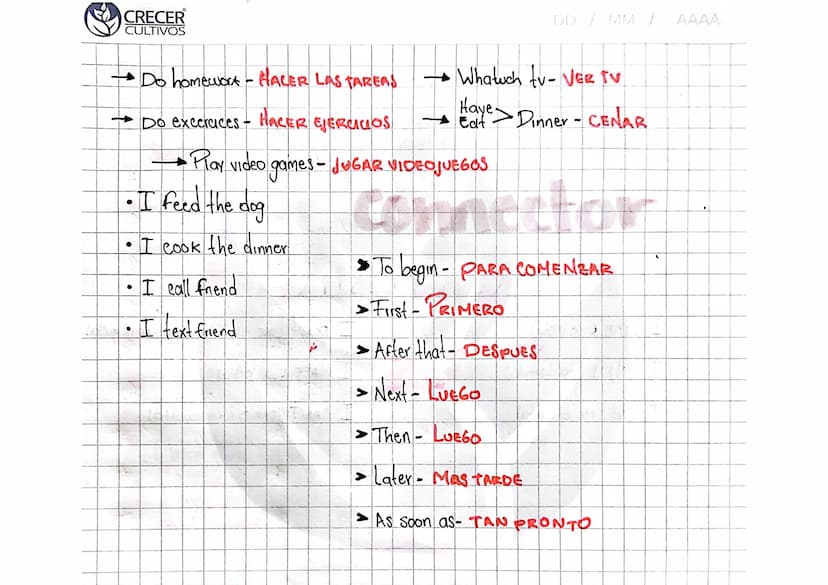 CRECER
CULTIVOS
DD / MM / AAAA
→ Do homework - HACER LAS TAREAS
→ Whatwch tv - VER TV
→ DO excercices - HACER EJERCICIOS
→ Have Eat > Dinner - CENAR
→ Play video games - JUGAR VIDEOJUEGOS
• I feed the dog
Connector
• I cook the dinner
➤ To begin - PARA COMENZAR
• I call friend
➤ First - PRIMERO
• I text friend
➤ After that - DESPUES
➤ Next - LUEGO
➤ Then - LUEGO
➤ Later - MAS TARDE
➤ As soon as - TAN PRONTO